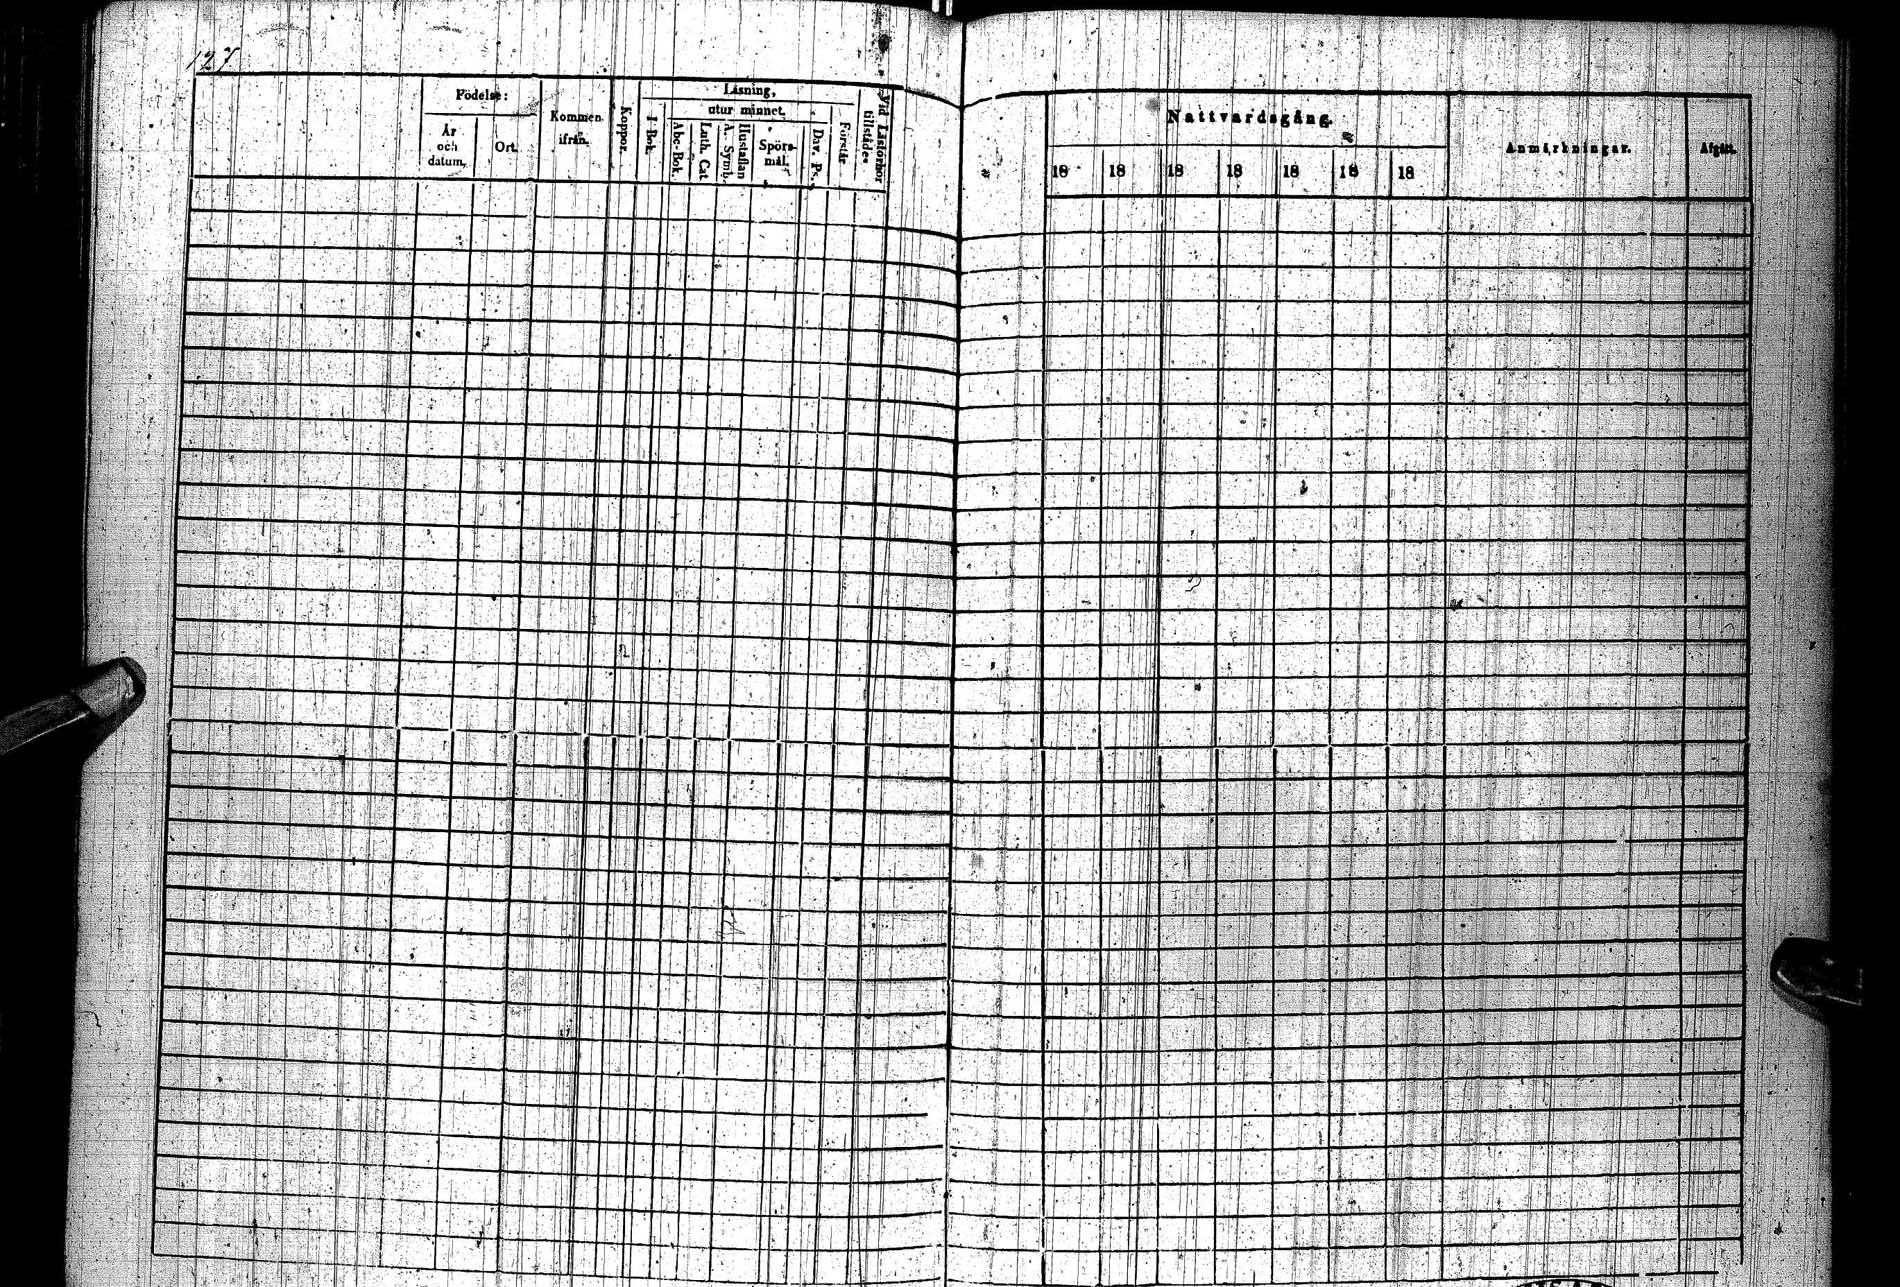 127
Födelse:
År och datum.
Ort.
Kommen ifrån.
Koppor.
Läsning,
I Bok.
utur minnet.
Abc-Bok.
Luth. Cat.
A. Symb. Hustaflan
Spörsmål.
Dav. Ps.
Förstår.
Vid Läsförhör tillstädes
Nattvardsgång.
18 18 18 18 18 18 18
Anmärkningar.
Afgått.